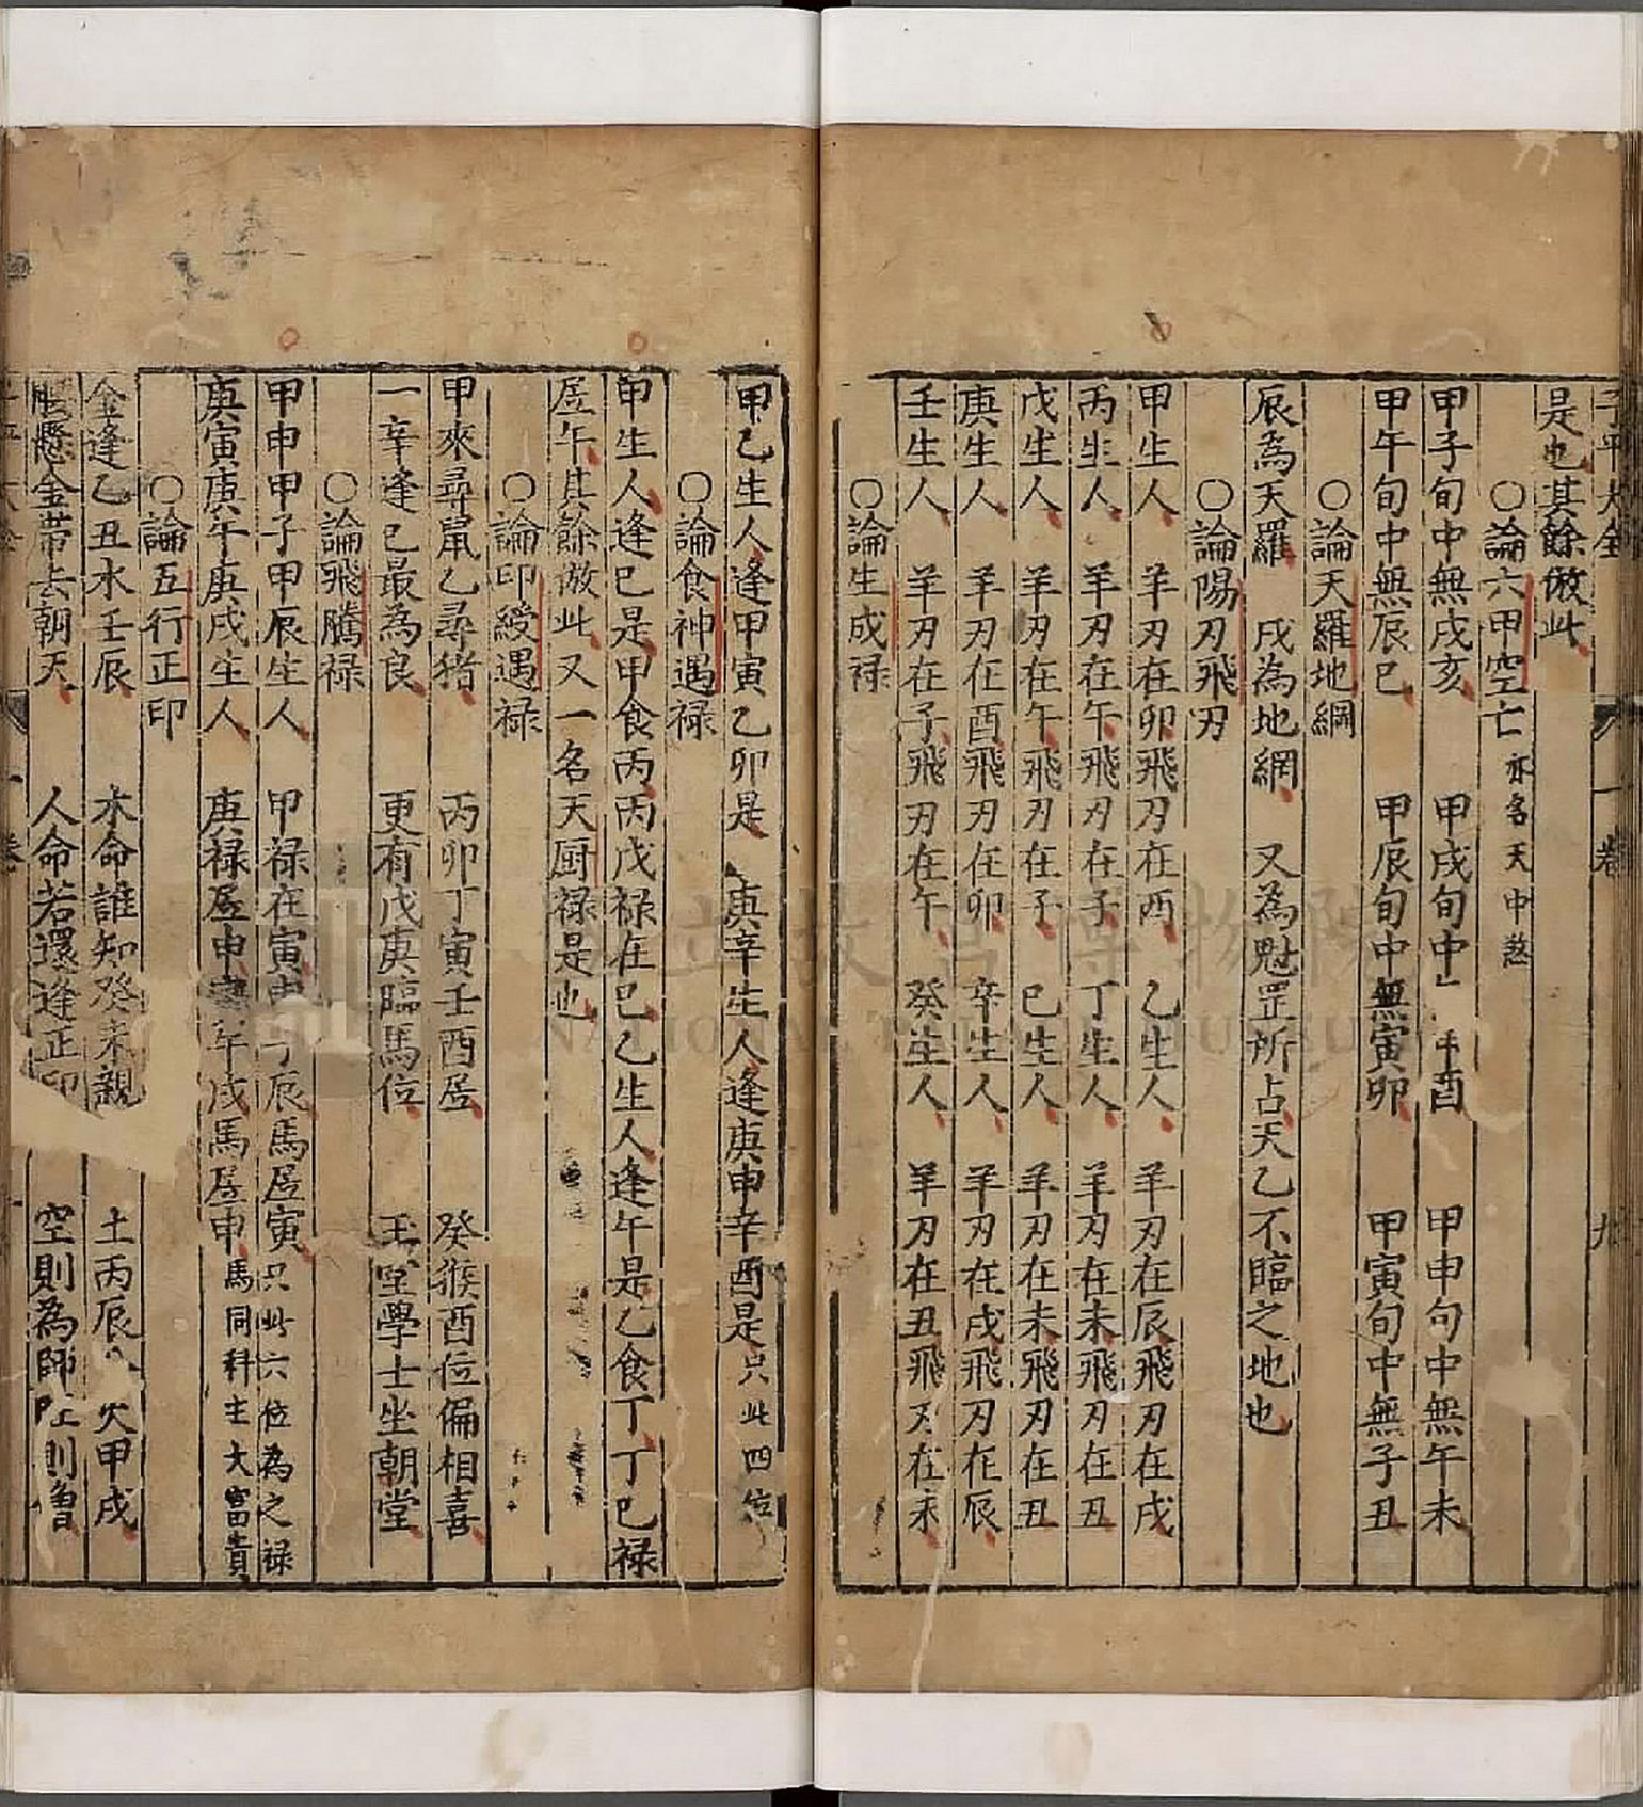 子平大全 一卷 九
是也其餘倣此
○論六甲空亡亦名天中煞
甲子旬中無戌亥 甲戌旬中 酉 甲申旬中無午未
甲午旬中無辰巳 甲辰旬中無寅卯 甲寅旬中無子丑
○論天羅地網
辰為天羅 戌為地網 又為魁罡所占天乙不臨之地也
○論陽刃飛刃
甲生人 羊刃在卯飛刃在酉 乙生人 羊刃在辰飛刃在戌
丙生人 羊刃在午飛刃在子 丁生人 羊刃在未飛刃在丑
戊生人 羊刃在午飛刃在子 巳生人 羊刃在未飛刃在丑
庚生人 羊刃在酉飛刃在卯 辛生人 羊刃在戌飛刃在辰
壬生人 羊刃在子飛刃在午 癸生人 羊刃在丑飛刃在未
○論生成祿
甲乙生人逢甲寅乙卯是 庚辛生人逢庚申辛酉是只此四位
○論食神遇祿
甲生人逢巳是甲食丙丙戊祿在巳乙生人逢午是乙食丁丁巳祿
居午其餘倣此又一名天厨祿是也
○論印綬遇祿
甲來尋鼠乙尋猪 丙卯丁寅壬酉居 癸猴酉位偏相喜
一辛逢巳最為良 更有戊庚臨馬位 玉堂學士坐朝堂
○論飛騰祿
甲申甲子甲辰生人 甲祿在寅申子辰馬居寅只此六位為之祿
庚寅庚午庚戌生人 庚祿居申寅午戌馬居申馬同科主大富貴
○論五行正印
金逢乙丑水壬辰 木命誰知癸未親 土丙辰 火甲戌
腰懸金帶去朝天 人命若還逢正印 空則為師 則僧